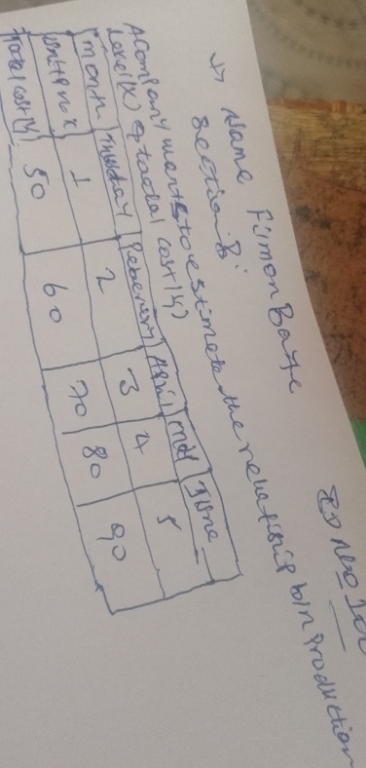 Name Filmon Baze
Section B
A company wants to estimate the relatioship b/n production
Level (X) & total cost (Y)
month | | | April | may | June
1 | 2 | 3 | 4 | 5
Total cost (Y) | 50 | 60 | 70 | 80 | 90